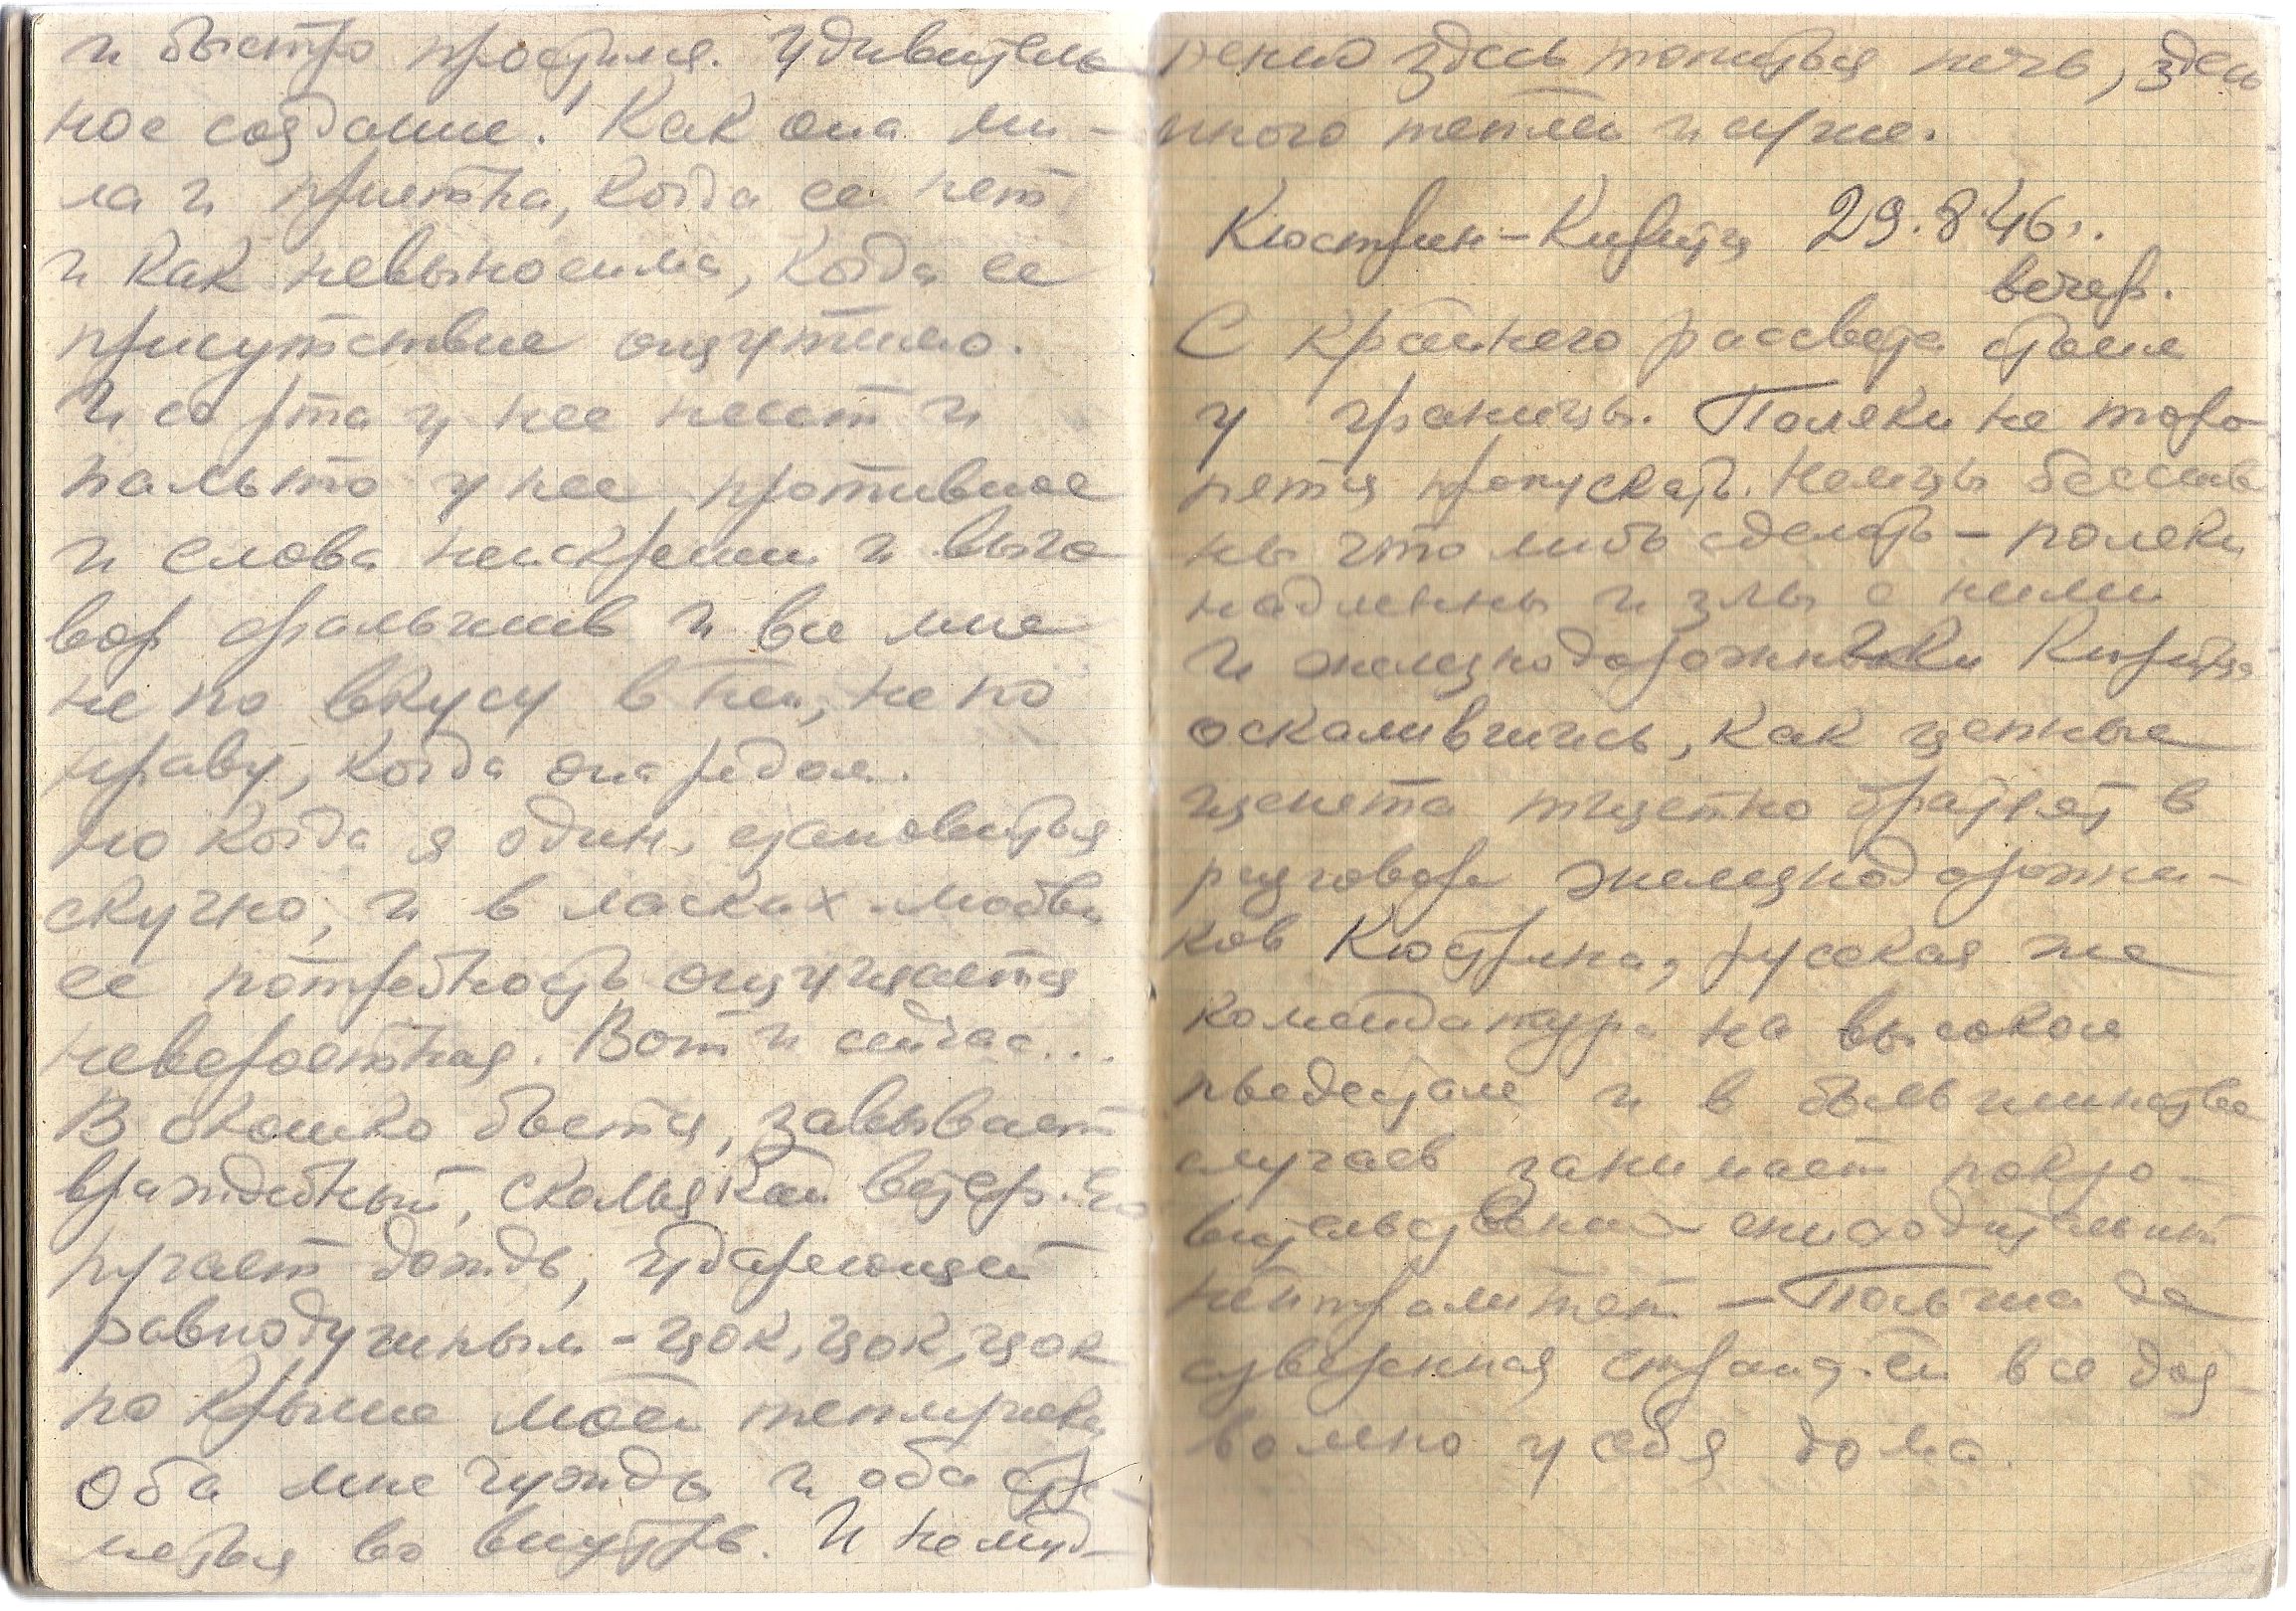 и быстро простился. Удивитель
ное создание! Как она ми-
ла и приятна, когда ее нет
и как невыносима, когда ее
присутствие ощутимо.
И со рта у нее несет и
пальто у нее противное
и слова неискренни и выго
вор фальшив и все мне
не по вкусу в ней, не по
нраву, когда она рядом.
Но когда я один, становиться
скучно, и в ласках любви
ее потребность ощущается
невероятная. Вот и сейчас...
В окошко бьется, завывает
враждебный, скользкий ветер. Его
ругает дождь, ударяющей
равнодушным - цок, цок, цок
по крыше моей теплушки
Оба мне чужды и оба стре-
мяться во внутрь. И немуд-
рено здесь топиться печь, здесь
много тепла и суше.
Кюстрин-Кириц 29.8.46г.
вечер.
С крайнего рассвета стоим
у границы. Поляки не торо
пятся пропускать. Немцы бессиль
ны что либо сделать - поляки
надменны и злы с ними
и железнодорожники Кирица
оскалившись, как цепные
щенята тщетно братят в
разговоре железнодорожни-
ков Кюстрина, русская же
комендатура на высоком
пьедестале и в большинстве
случаев занимает покро-
вительственно снисходительный
нейтралитет - Польша де
суверенная страна. ей все доз-
волено у себя дома.